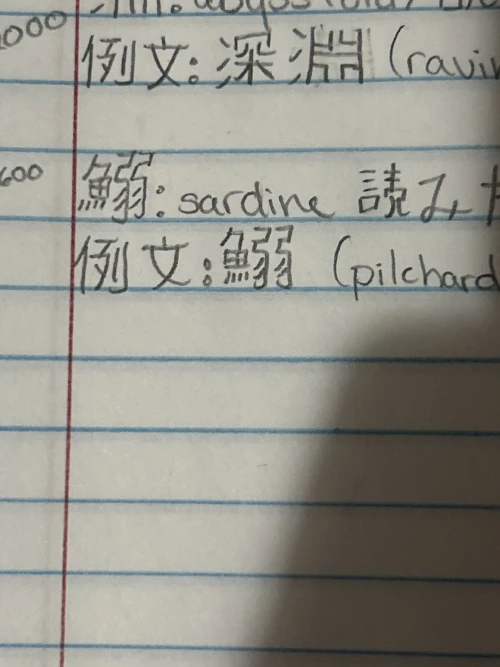 000
例文: 深淵 (ravin
600
鰯: sardine 読み
例文: 鰯 (pilchard